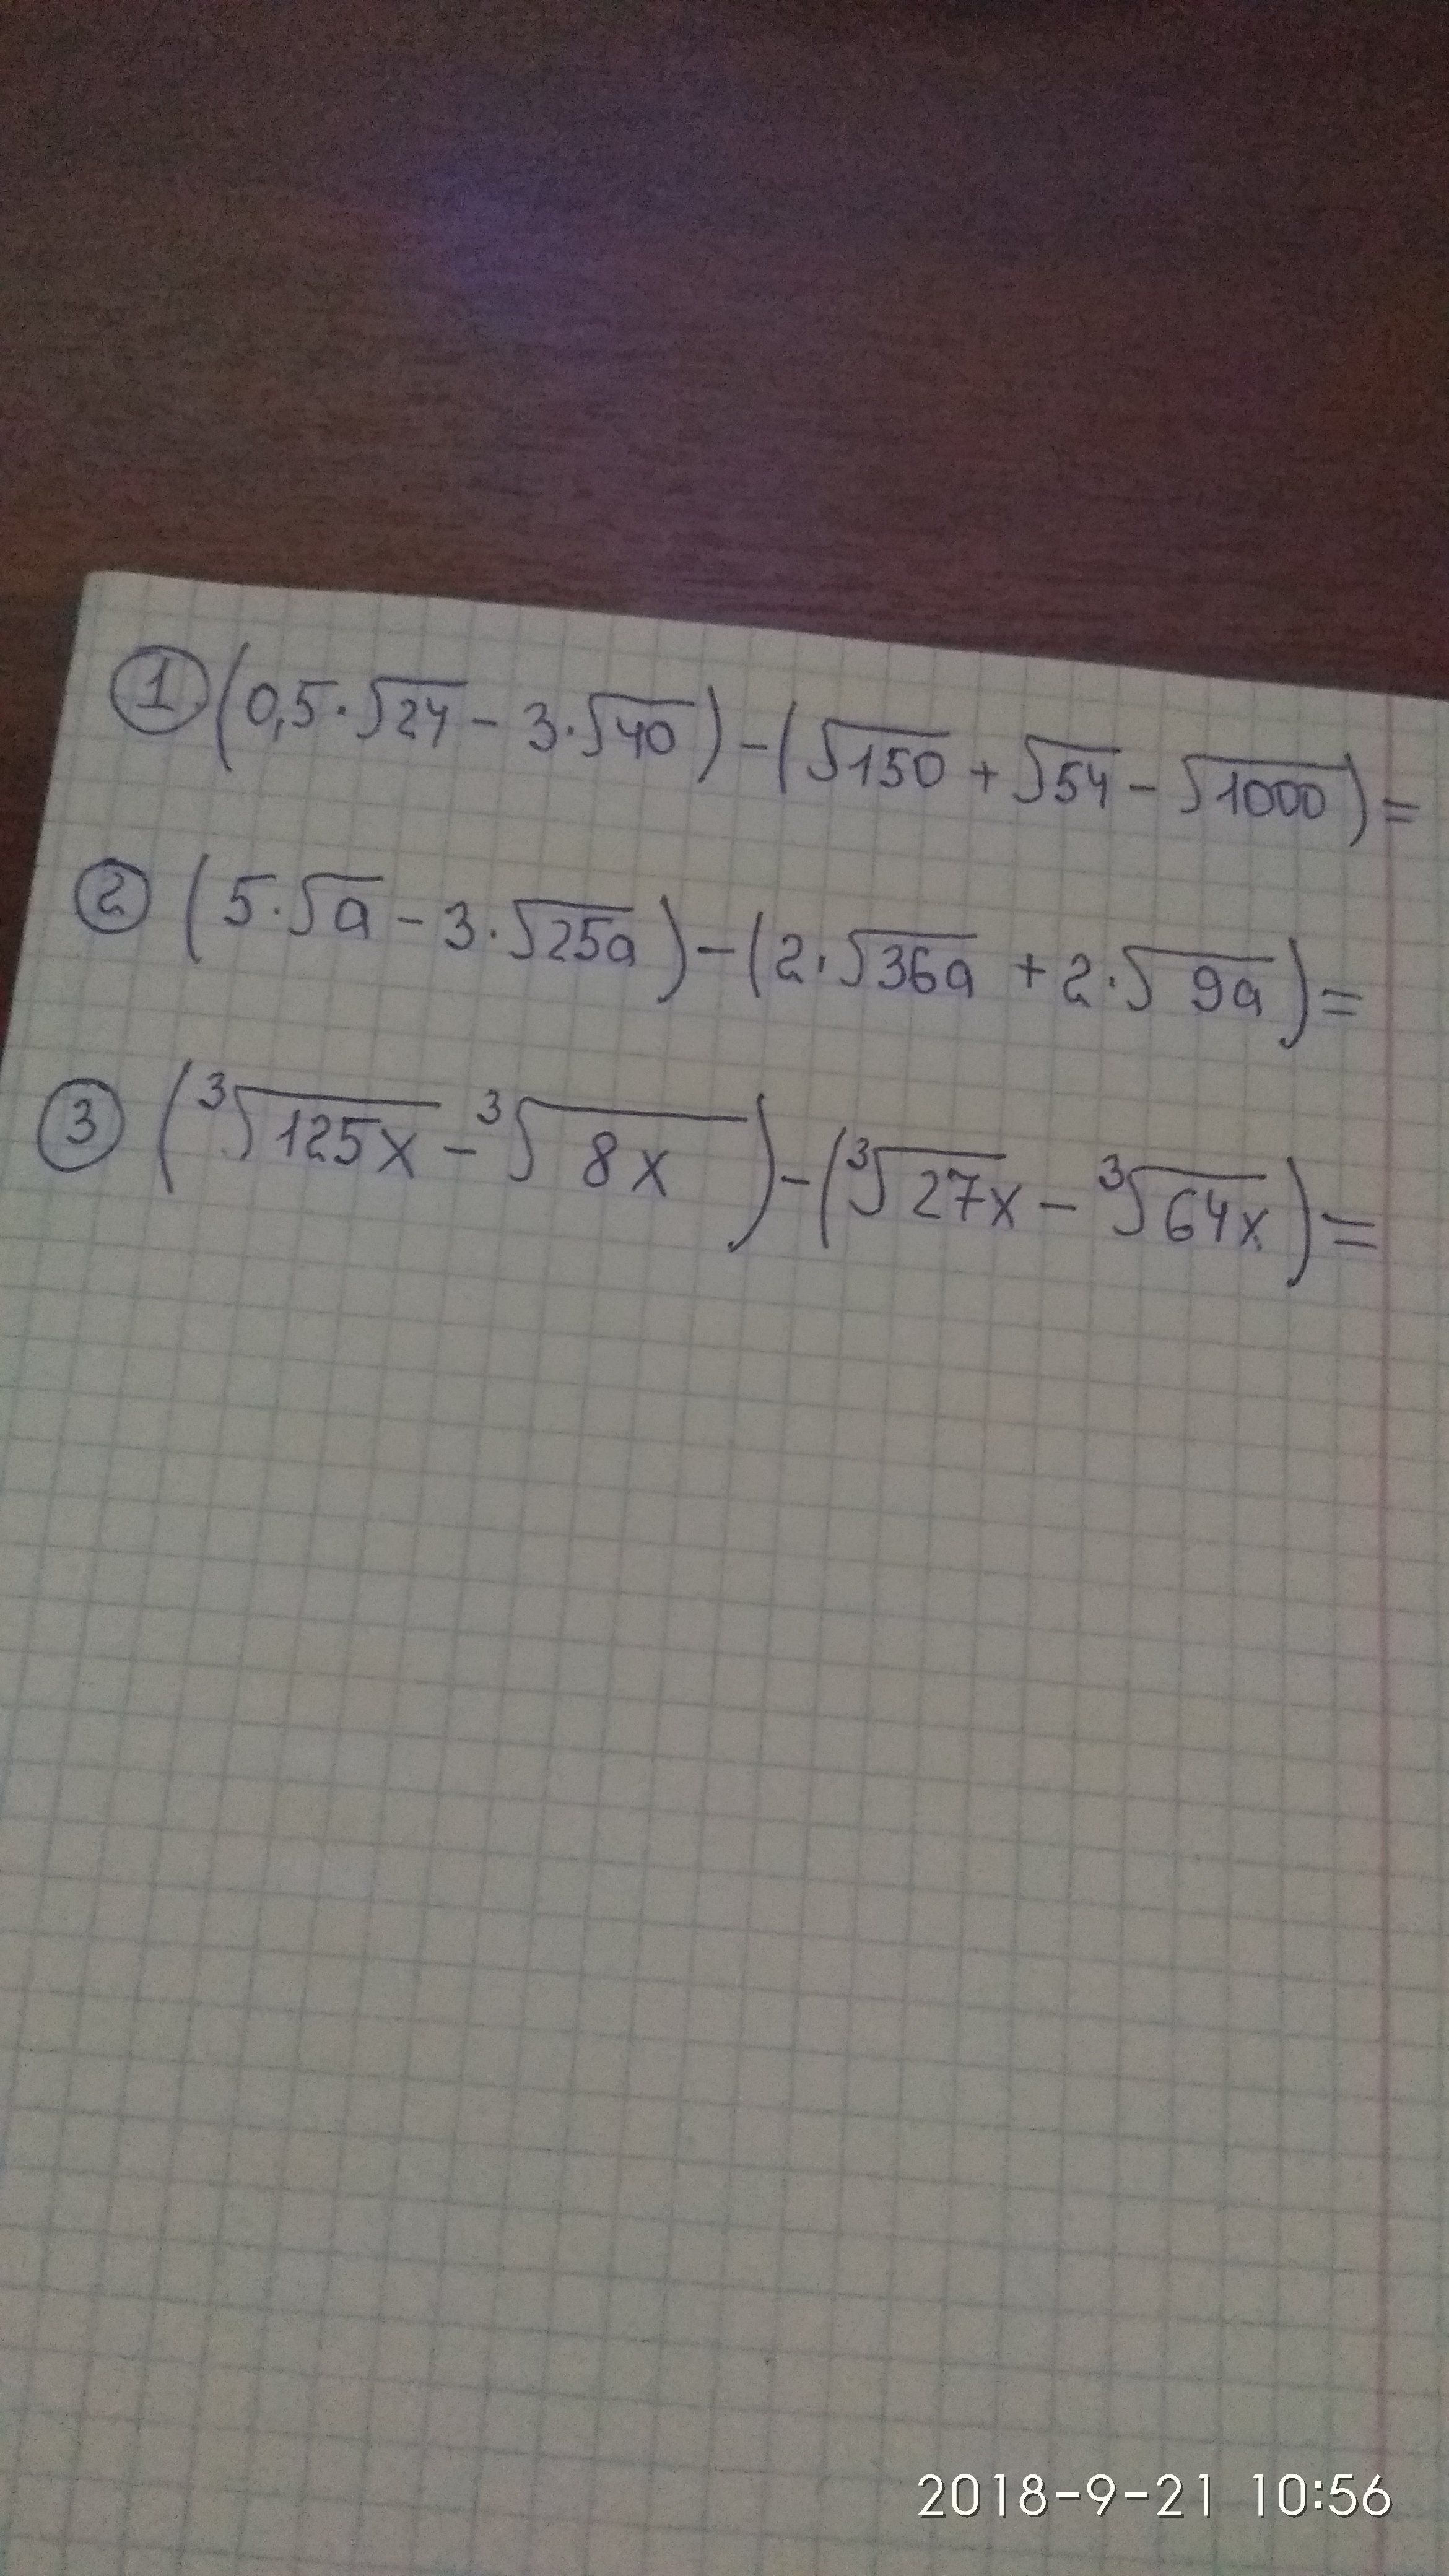 ① (0,5·√24 - 3·√40) - (√150 + √54 - √1000) =
② (5·√a - 3·√25a) - (2·√36a + 2·√9a) =
③ (³√125x - ³√8x) - (³√27x - ³√64x) =
2018-9-21 10:56